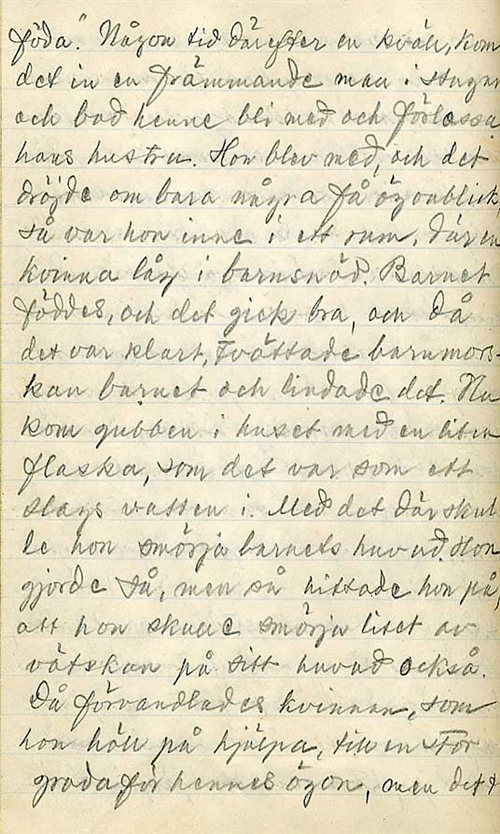 föda." Någon tid därefter en kväll, kom
det in en främmande man i stugan
och bad henne bli med och förlossa
hans hustru. Hon blev med, och det
dröjde om bara några få ögonblick
så var hon inne i ett rum, där en
kvinna låg i barnsnöd. Barnet
föddes, och det gick bra, och då
det var klart, tvättade barnmors-
kan barnet och lindade det. Nu
kom gubben i huset med en liten
flaska, som det var som ett
slags vatten i. Med det där skul-
le hon smörja barnets huvud. Hon
gjorde så, men så hittade hon på,
att hon skulle smörja litet av
vätskan på sitt huvud också.
Då förvandlades kvinnan, som
hon höll på hjälpa, till en stor
groda för hennes ögon, men det